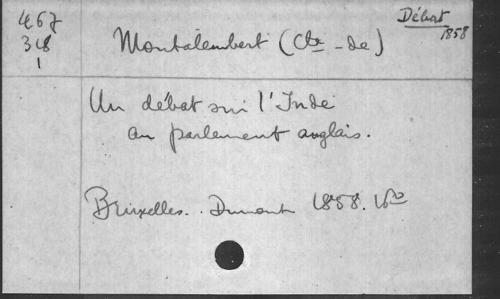 467
318
1
Débat
1858
Montalembert (Cte - de)
Un débat sur l'Inde
au parlement anglais.
Bruxelles. Dumont 1858. 16o